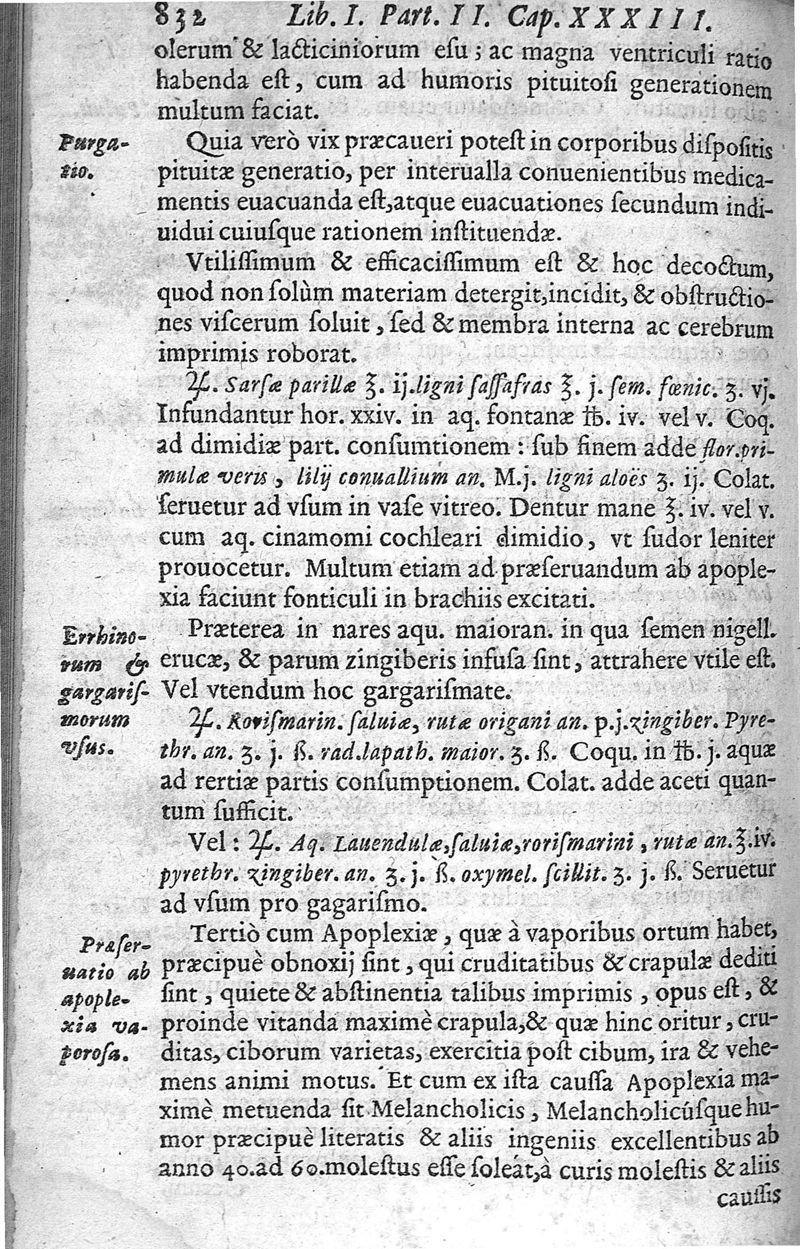 832 Lib. I. Part. II. Cap. XXXIII.
olerum & lacticiniorum eſu; ac magna ventriculi ratio
habenda eſt, cum ad humoris pituitoſi generationem
multum faciat.
Purga-
tio.
Quia verò vix præcaueri poteſt in corporibus diſpoſitis
pituitæ generatio, per interualla conuenientibus medica-
mentis euacuanda eſt, atque euacuationes ſecundum indi-
uidui cuiuſque rationem inſtituendæ.
Vtiliſſimum & efficaciſſimum eſt & hoc decoctum,
quod non ſolùm materiam detergit, incidit, & obſtructio-
nes viſcerum ſoluit, ſed & membra interna ac cerebrum
imprimis roborat.
℞. Sarſæ parillæ ℥. ij. ligni ſaſſafras ℥. j. ſem. fœnic. ʒ. vj.
Infundantur hor. xxiv. in aq. fontanæ ℔. iv. vel v. Coq.
ad dimidiæ part. conſumtionem: ſub finem adde flor. pri-
mulæ veris, lilij conuallium an. M. j. ligni aloës ʒ. ij. Colat.
ſeruetur ad vſum in vaſe vitreo. Dentur mane ℥. iv. vel v.
cum aq. cinamomi cochleari dimidio, vt ſudor leniter
prouocetur. Multum etiam ad præſeruandum ab apople-
xia faciunt fonticuli in brachiis excitati.
Errhino-
rum &
gargariſ-
morum
vſus.
Præterea in nares aqu. maioran. in qua ſemen nigell.
erucæ, & parum zingiberis infuſa ſint, attrahere vtile eſt.
Vel vtendum hoc gargariſmate.
℞. Roriſmarin. ſaluiæ, rutæ origani an. p. j. zingiber. Pyre-
thr. an. ʒ. j. ß. rad. lapath. maior. ʒ. ß. Coqu. in ℔. j. aquæ
ad rertiæ partis conſumptionem. Colat. adde aceti quan-
tum ſufficit.
Vel: ℞. Aq. Lauendulæ, ſaluiæ, roriſmarini, rutæ an. ℥. iv.
pyrethr. zingiber. an. ʒ. j. ß. oxymel. ſcillit. ʒ. j. ß. Seruetur
ad vſum pro gagariſmo.
Præſer-
uatio ab
apople-
xia va-
poroſa.
Tertiò cum Apoplexiæ, quæ à vaporibus ortum habet,
præcipuè obnoxij ſint, qui cruditatibus & crapulæ dediti
ſint, quiete & abſtinentia talibus imprimis, opus eſt, &
proinde vitanda maximè crapula, & quæ hinc oritur, cru-
ditas, ciborum varietas, exercitia poſt cibum, ira & vehe-
mens animi motus. Et cum ex iſta cauſſa Apoplexia ma-
ximè metuenda ſit Melancholicis, Melancholicúſque hu-
mor præcipuè literatis & aliis ingeniis excellentibus ab
anno 40. ad 60. moleſtus eſſe ſoleāt, à curis moleſtis & aliis
cauſſis